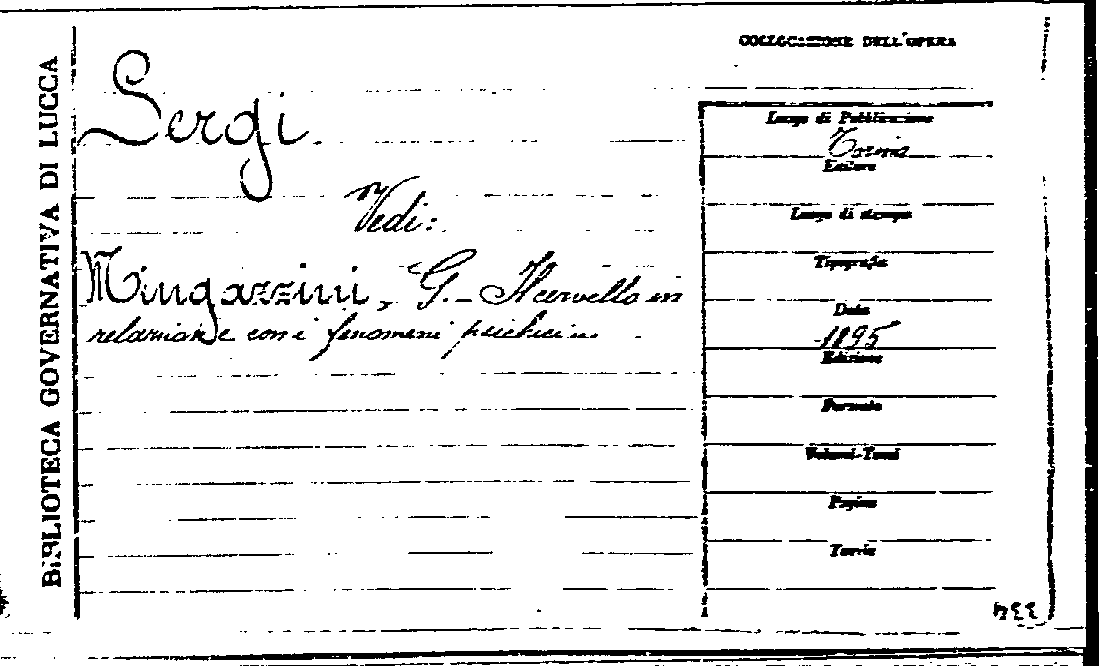 BIBLIOTECA GOVERNATIVA DI LUCCA
COLLOCAZIONE DELL'OPERA
Sergi.
Vedi:
Mingazzini, G. - Il cervello in
relazione con i fenomeni psichici
Luogo di Pubblicazione
Torino
Editore
Luogo di stampa
Tipografia
Data
1895
Edizione
Formato
Volumi-Tomi
Pagine
Tavole